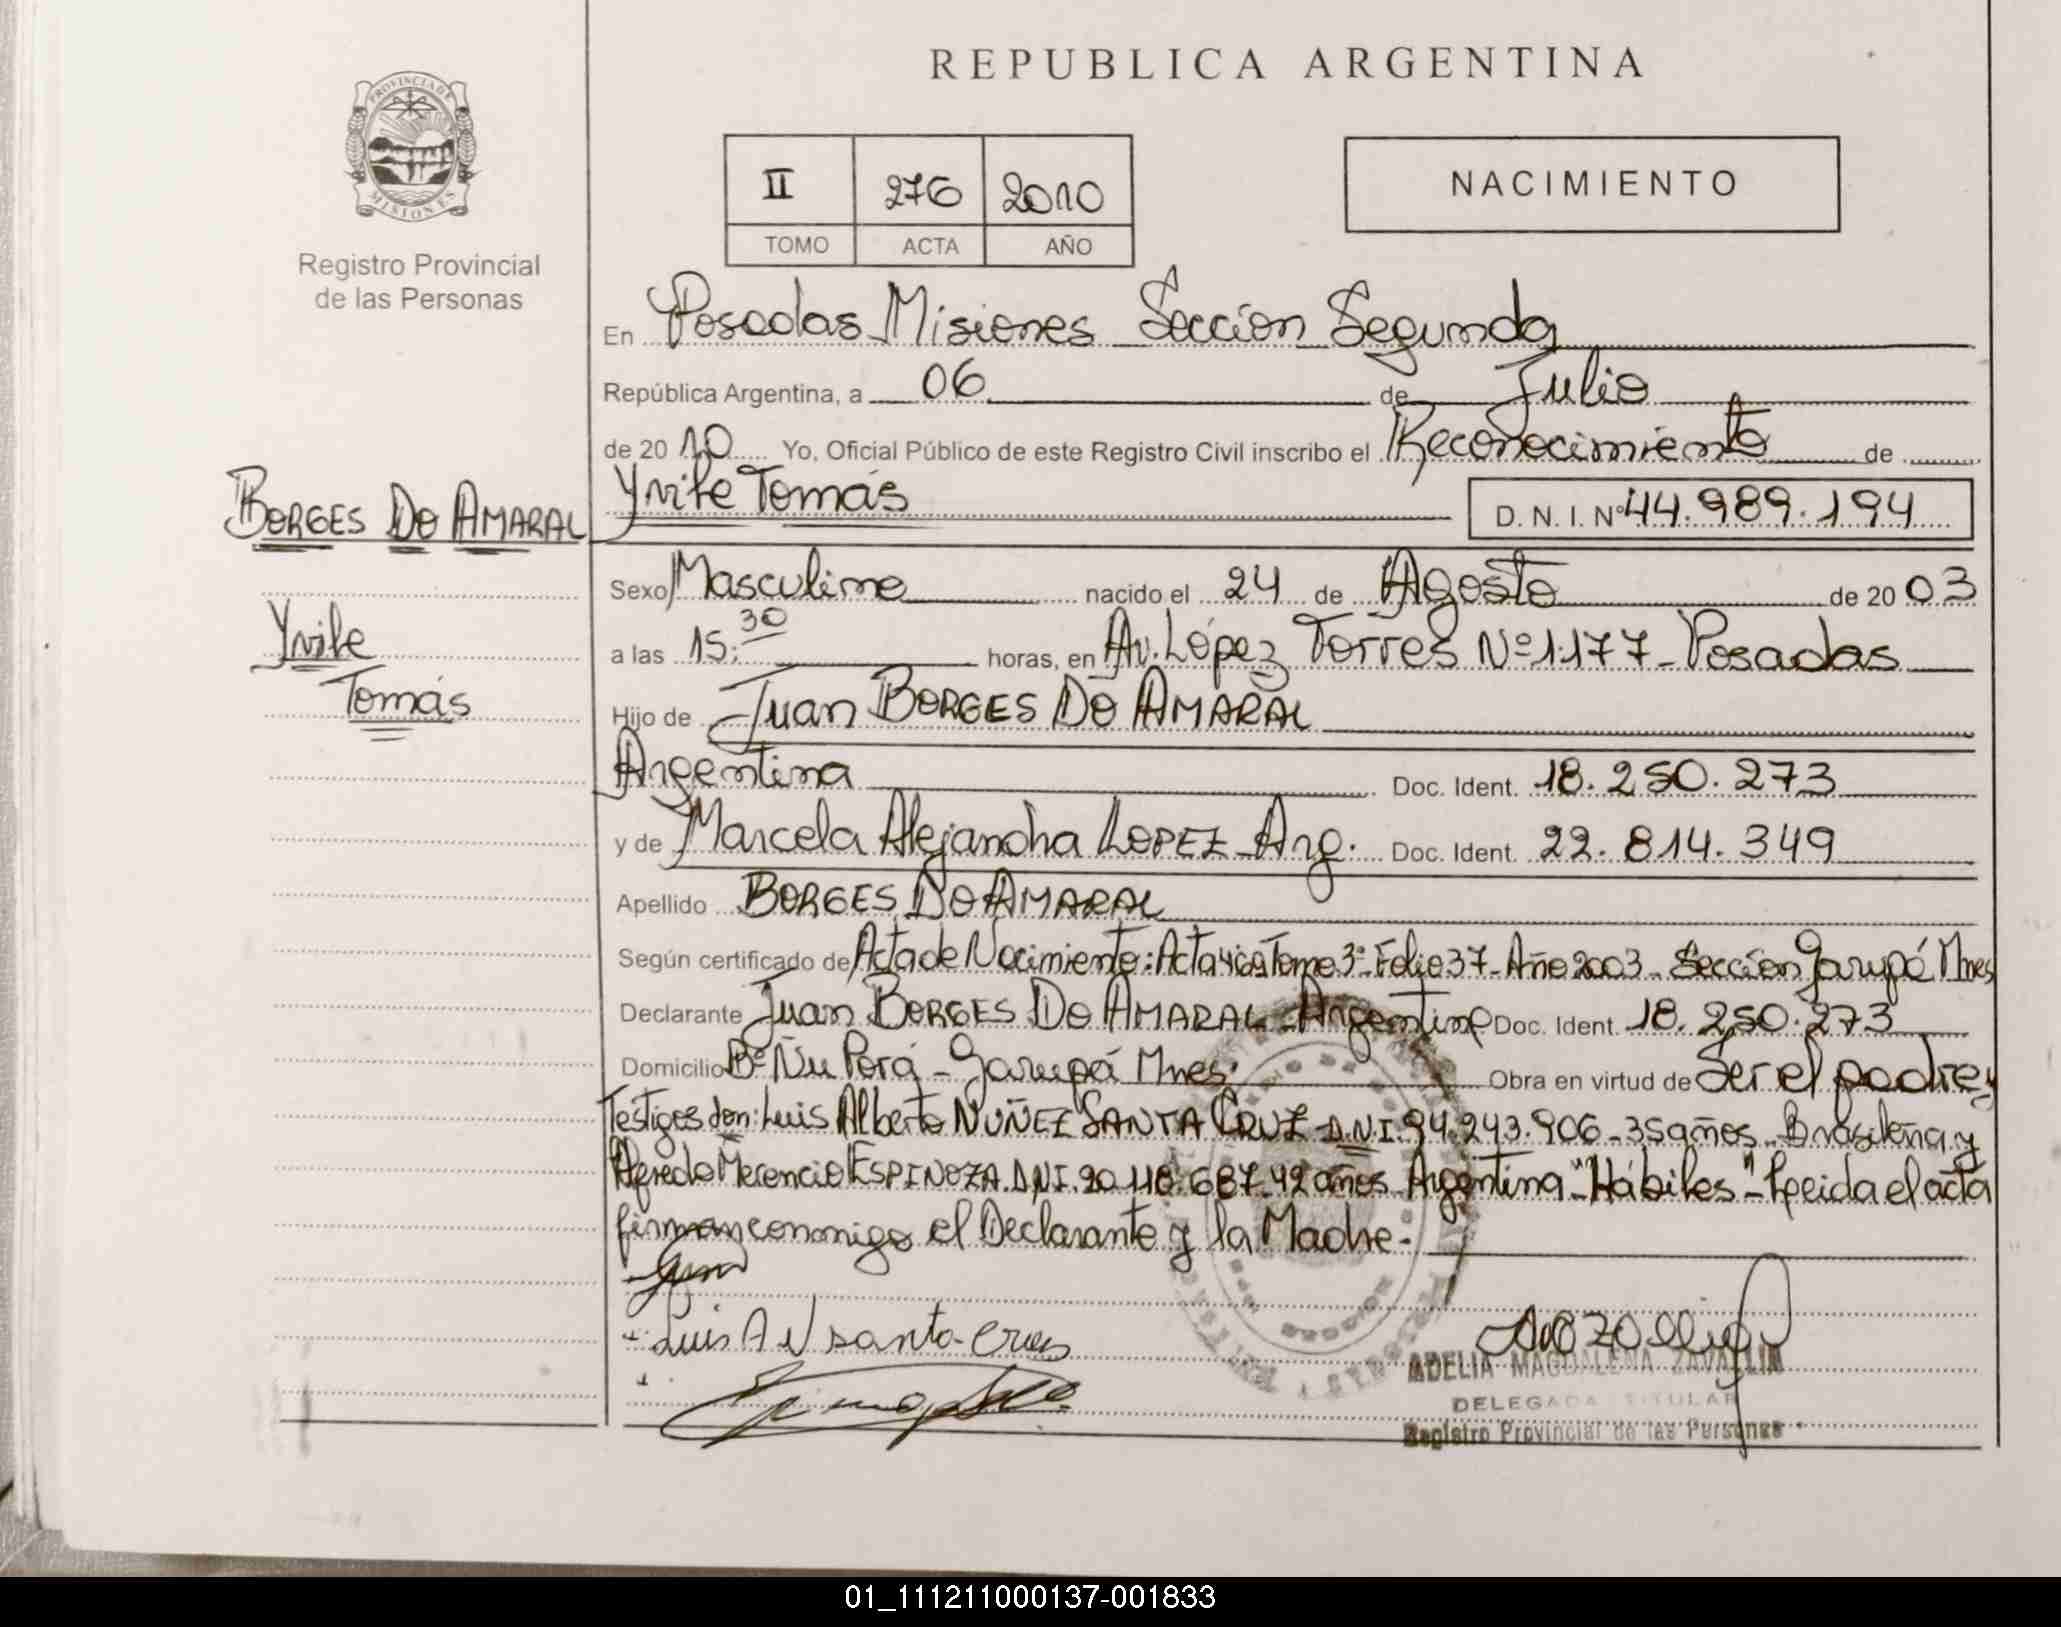 REPUBLICA ARGENTINA
PROVINCIA DE
MISIONES
Registro Provincial
de las Personas
II 276 2010
TOMO ACTA AÑO
NACIMIENTO
En Posadas Misiones Sección Segunda
República Argentina, a 06 de Julio
de 2010 Yo, Oficial Público de este Registro Civil inscribo el Reconocimiento de
BORGES DO AMARAL
Yvile
Tomás
Yvile Tomás D. N. I. Nº 44.989.194
Sexo Masculino nacido el 24 de Agosto de 2003
a las 15:30 horas, en Av. López Torres Nº 1177 - Posadas
Hijo de Juan BORGES DO AMARAL
Argentina Doc. Ident. 18.250.273
y de Marcela Alejandra LOPEZ - Arg. Doc. Ident. 22.814.349
Apellido BORGES DO AMARAL
Según certificado de Acta de Nacimiento: Acta Tomo 3º - Folio 37 - Año 2003 - Sección Garupá Mnes
Declarante Juan BORGES DO AMARAL - Argentino Doc. Ident. 18.250.273
Domicilio Bº Ñu Porá - Garupá Mnes. Obra en virtud de Ser el padre y
Testigos don: Luis Alberto NUÑEZ SANTA CRUZ D.N.I. 94.243.906 - 35 años - Brasileña y
ESPINOZA. D.N.I. 20.118.687 - 42 años - Argentina "Hábiles" - Leida el acta
firman conmigo el Declarante y la Madre.-
Luis A N santa cruz
ADELIA MAGDALENA ZAVALLIN
DELEGADA TITULAR
Registro Provincial de las Personas
01_111211000137-001833